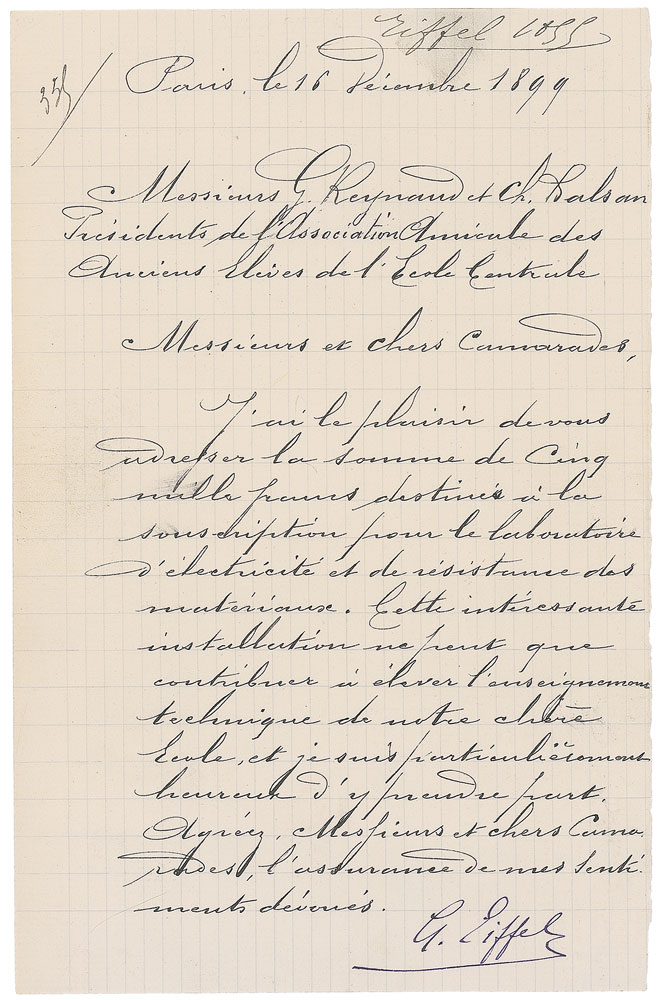 Eiffel 1855
Paris, le 16 Décembre 1899
Messieurs G. Reynaud et Ch. Dalsan
Présidents de l'Association Amicale des
Anciens Elèves de l'Ecole Centrale
Messieurs et chers Camarades,
J'ai le plaisir de vous
adresser la somme de Cinq
mille francs destinés à la
souscription pour le laboratoire
d'électricité et de résistance des
matériaux. Cette intéressante
installation ne peut que
contribuer à élever l'enseignement
technique de notre chère
Ecole, et je suis particulièrement
heureux d'y prendre part.
Agréez, Messieurs et chers Cama-
rades, l'assurance de mes senti-
ments dévoués.
G. Eiffel